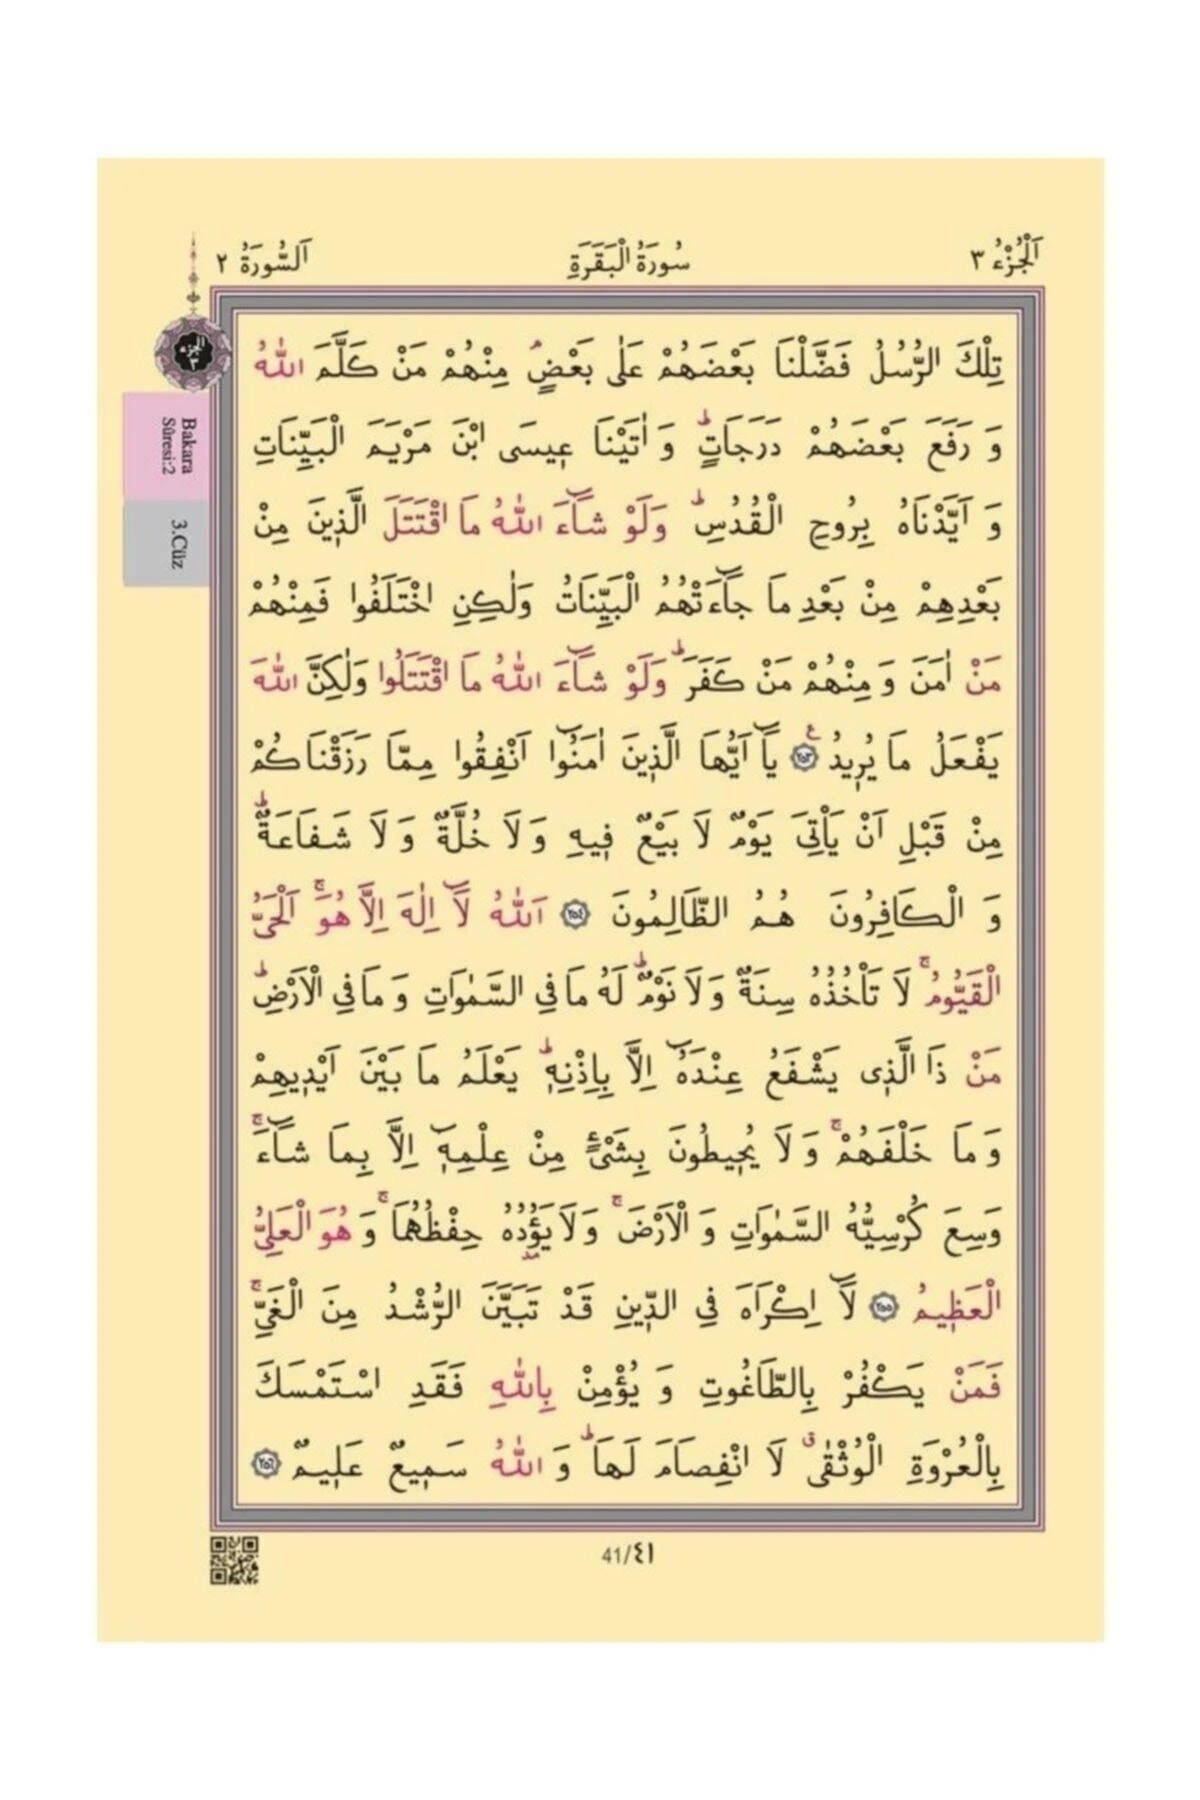 اَلْجُزْءُ ٣
سُورَةُ الْبَقَرَةِ
اَلسُّورَةُ ٢
الجزء ٣
Bakara
Sûresi:2
3.Cüz
تِلْكَ الرُّسُلُ فَضَّلْنَا بَعْضَهُمْ عَلٰى بَعْضٍۢ مِنْهُمْ مَنْ كَلَّمَ اللّٰهُ
وَ رَفَعَ بَعْضَهُمْ دَرَجَاتٍۜ وَ اٰتَيْنَا عٖيسَى ابْنَ مَرْيَمَ الْبَيِّنَاتِ
وَ اَيَّدْنَاهُ بِرُوحِ الْقُدُسِۜ وَلَوْ شَٓاءَ اللّٰهُ مَا اقْتَتَلَ الَّذٖينَ مِنْ
بَعْدِهِمْ مِنْ بَعْدِ مَا جَٓاءَتْهُمُ الْبَيِّنَاتُ وَلٰكِنِ اخْتَلَفُوا فَمِنْهُمْ
مَنْ اٰمَنَ وَ مِنْهُمْ مَنْ كَفَرَۜ وَلَوْ شَٓاءَ اللّٰهُ مَا اقْتَتَلُوا وَلٰكِنَّ اللّٰهَ
يَفْعَلُ مَا يُرٖيدُࣖ ٢٥٣ يَٓا اَيُّهَا الَّذٖينَ اٰمَنُٓوا اَنْفِقُوا مِمَّا رَزَقْنَاكُمْ
مِنْ قَبْلِ اَنْ يَأْتِىَ يَوْمٌ لَا بَيْعٌ فٖيهِ وَ لَا خُلَّةٌ وَ لَا شَفَاعَةٌۜ
وَ الْكَافِرُونَ هُمُ الظَّالِمُونَ ٢٥٤ اَللّٰهُ لَٓا اِلٰهَ اِلَّا هُوَۚ اَلْحَىُّ
الْقَيُّومُۚ لَا تَأْخُذُهُ سِنَةٌ وَ لَا نَوْمٌۜ لَهُ مَا فِى السَّمٰوَاتِ وَ مَا فِى الْاَرْضِۜ
مَنْ ذَا الَّذٖى يَشْفَعُ عِنْدَهُٓ اِلَّا بِاِذْنِهٖۜ يَعْلَمُ مَا بَيْنَ اَيْدٖيهِمْ
وَ مَا خَلْفَهُمْۚ وَ لَا يُحٖيطُونَ بِشَىْءٍ مِنْ عِلْمِهٖٓ اِلَّا بِمَا شَٓاءَۚ
وَسِعَ كُرْسِيُّهُ السَّمٰوَاتِ وَ الْاَرْضَۚ وَ لَا يَؤُ۫دُهُ حِفْظُهُمَاۚ وَ هُوَ الْعَلِىُّ
الْعَظٖيمُ ٢٥٥ لَٓا اِكْرَاهَ فِى الدّٖينِ قَدْ تَبَيَّنَ الرُّشْدُ مِنَ الْغَىِّۚ
فَمَنْ يَكْفُرْ بِالطَّاغُوتِ وَ يُؤْمِنْ بِاللّٰهِ فَقَدِ اسْتَمْسَكَ
بِالْعُرْوَةِ الْوُثْقٰىۗ لَا انْفِصَامَ لَهَاۜ وَ اللّٰهُ سَمٖيعٌ عَلٖيمٌ ٢٥٦
41/٤١